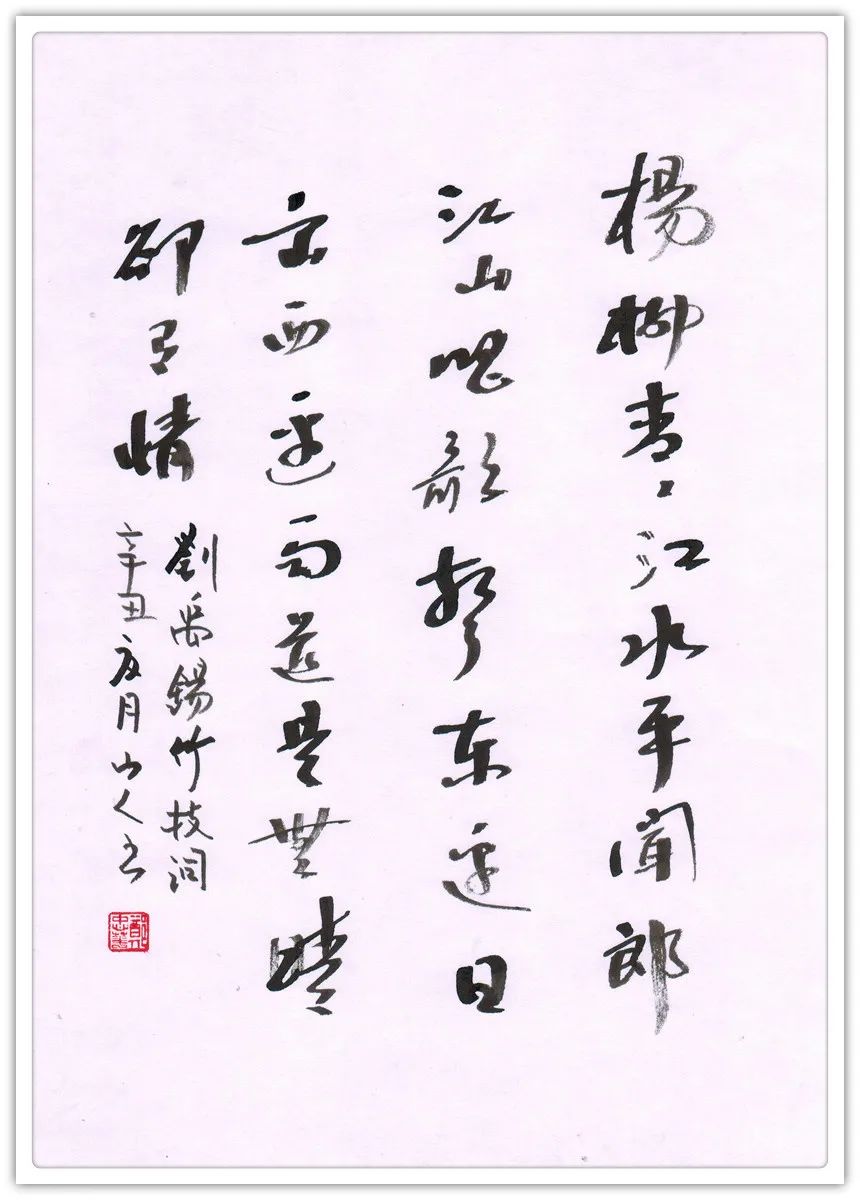 楊柳青々江水平聞郎
江山唱歌聲東邊日
出西邊雨道是無晴
卻有情
劉禹錫竹枝詞
辛丑月山人书